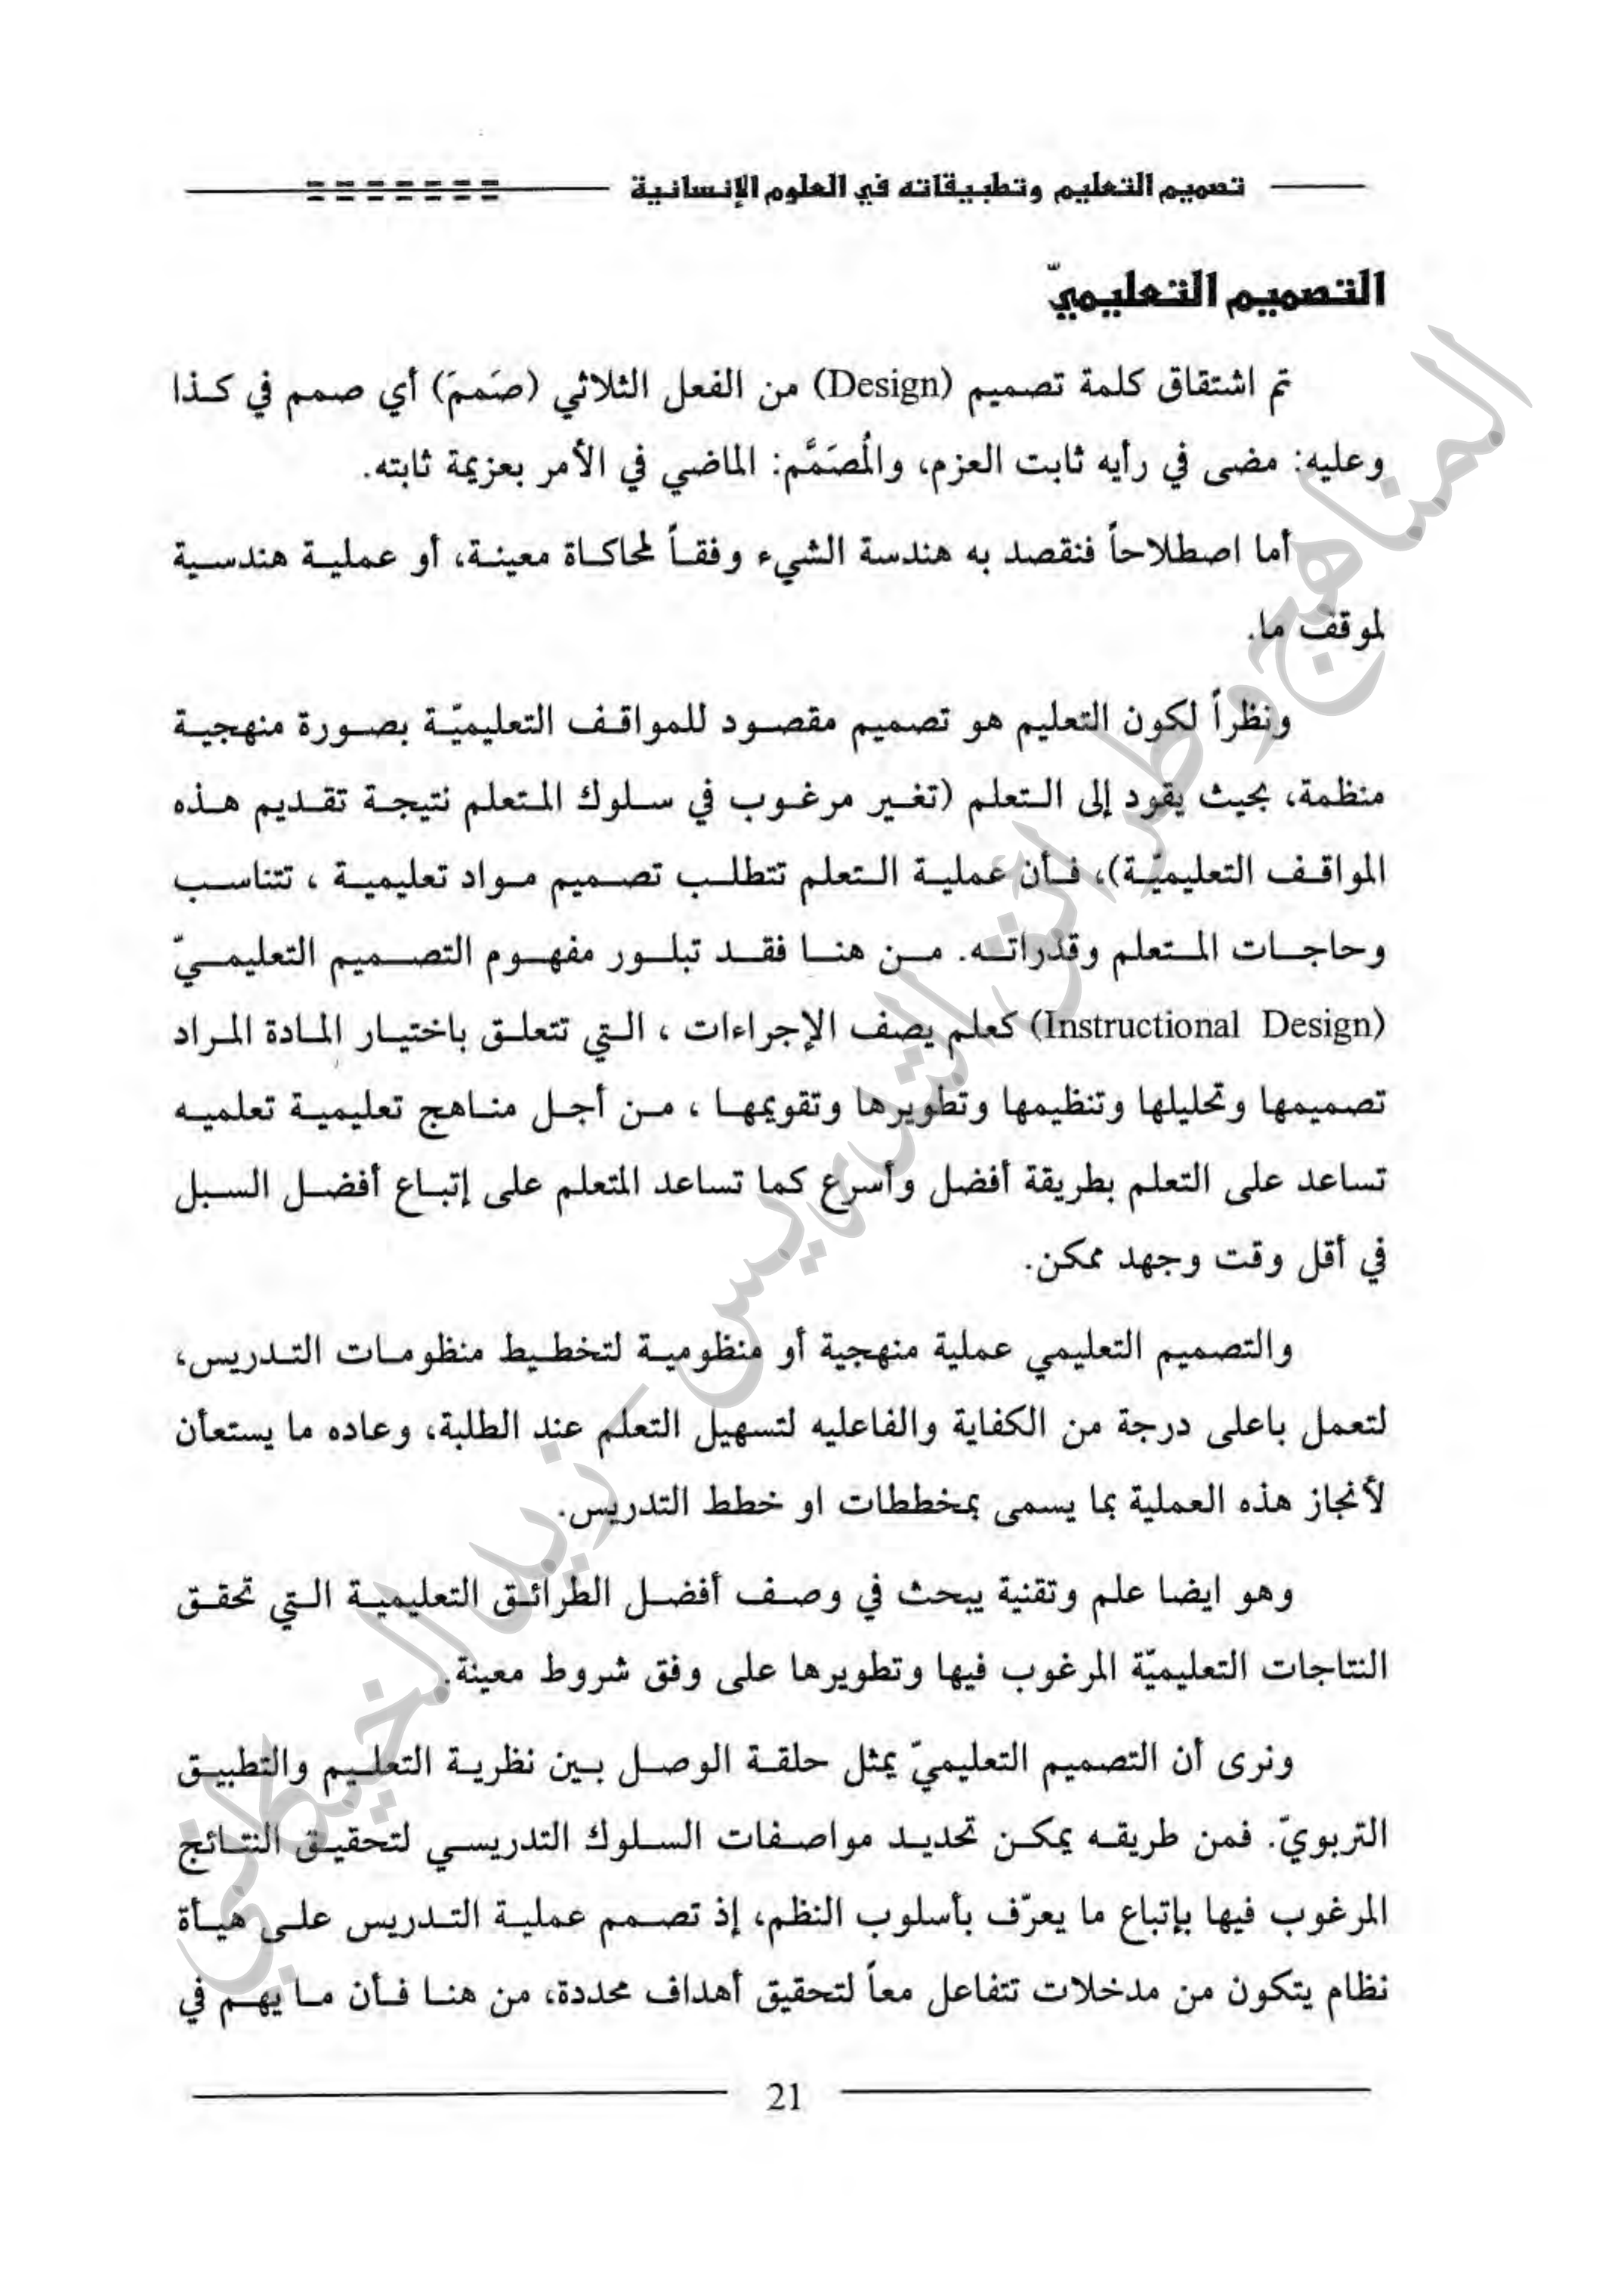 تصميم التعليم وتطبيقاته في العلوم الإنسانية
التصميم التعليميّ
تم اشتقاق كلمة تصميم (Design) من الفعل الثلاثي (صَممَ) أي صمم في كذا
وعليه: مضى في رأيه ثابت العزم، والُمصَمَّم: الماضي في الأمر بعزيمة ثابته.
أما اصطلاحاً فنقصد به هندسة الشيء وفقاً لمحاكاة معينة، أو عملية هندسية
لموقف ما.
ونظراً لكون التعليم هو تصميم مقصود للمواقف التعليميّة بصورة منهجية
منظمة، بحيث يقود إلى التعلم (تغير مرغوب في سلوك المتعلم نتيجة تقديم هذه
المواقف التعليميّة)، فأن عملية التعلم تتطلب تصميم مواد تعليمية ، تتناسب
وحاجات المتعلم وقدراته. من هنا فقد تبلور مفهوم التصميم التعليميّ
(Instructional Design) كعلم يصف الإجراءات ، التي تتعلق باختيار المادة المراد
تصميمها وتحليلها وتنظيمها وتطويرها وتقويمها ، من أجل مناهج تعليمية تعلميه
تساعد على التعلم بطريقة أفضل وأسرع كما تساعد المتعلم على إتباع أفضل السبل
في أقل وقت وجهد ممكن.
والتصميم التعليمي عملية منهجية أو منظومية لتخطيط منظومات التدريس،
لتعمل باعلى درجة من الكفاية والفاعليه لتسهيل التعلم عند الطلبة، وعاده ما يستعأن
لأنجاز هذه العملية بما يسمى بمخططات او خطط التدريس.
وهو ايضا علم وتقنية يبحث في وصف أفضل الطرائق التعليمية التي تحقق
النتاجات التعليميّة المرغوب فيها وتطويرها على وفق شروط معينة.
ونرى أن التصميم التعليميّ يمثل حلقة الوصل بين نظرية التعليم والتطبيق
التربويّ. فمن طريقه يمكن تحديد مواصفات السلوك التدريسي لتحقيق النتائج
المرغوب فيها بإتباع ما يعرّف بأسلوب النظم، إذ تصمم عملية التدريس على هيأة
نظام يتكون من مدخلات تتفاعل معاً لتحقيق أهداف محددة، من هنا فأن ما يهم في
21
المناهج وطرائق التدريس - زيد الخيكاني